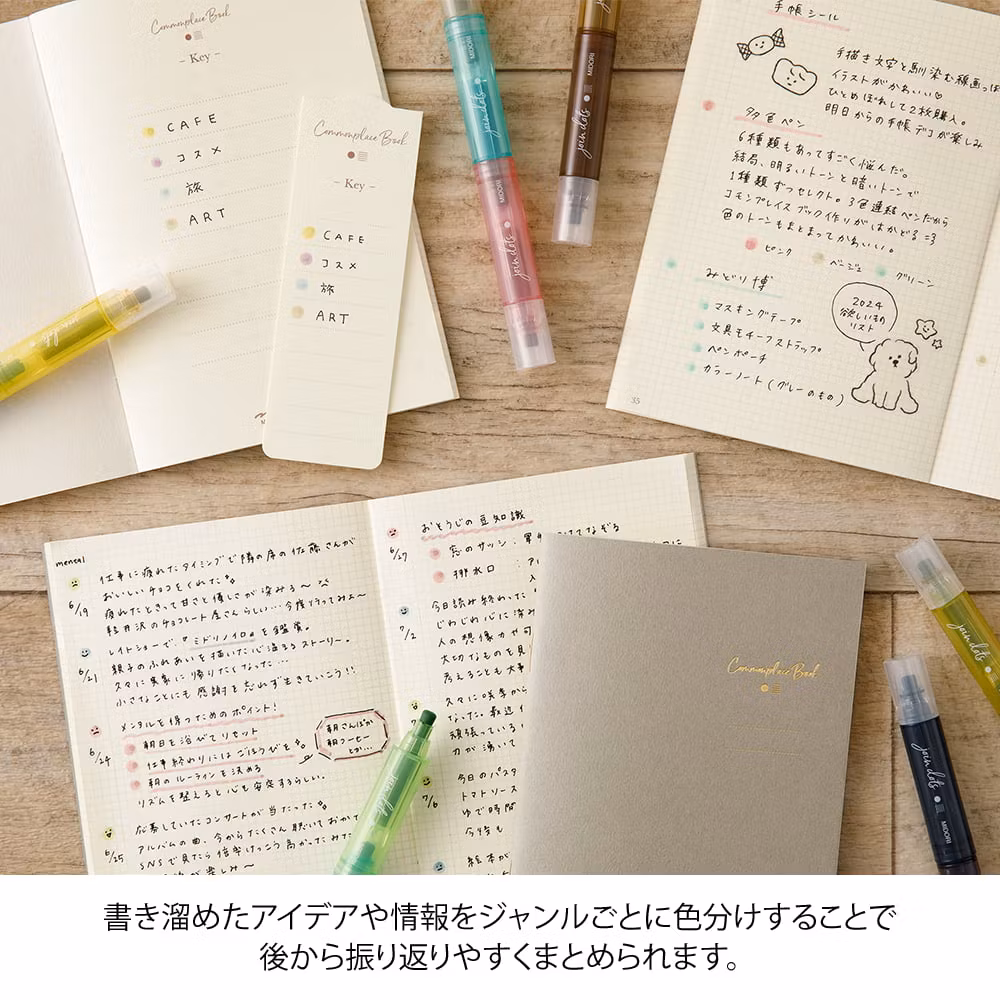 Commonplace Book
– Key –
CAFE
コスメ
旅
ART
Commonplace Book
– Key –
CAFE
コスメ
旅
ART
join dots
MIDORI
join dots
MIDORI
join dots
MIDORI
手帳シール
手描き文字と馴染む線画っぽ
イラストがかわいい♡
ひとめぼれして2枚購入。
明日からの手帳デコが楽しみ
多色ペン
6種類もあってすごく悩んだ。
結局、明るいトーンと暗いトーンで
1種類ずつセレクト。3色連結ペンだから
コモンプレイスブック作りがはかどる =3
色のトーンもまとまってかわいい。
ピンク
ベージュ
グリーン
みどり博
マスキングテープ
文具モチーフストラップ
ペンポーチ
カラーノート(グレーのもの)
2024
欲しいもの
リスト
35
mental
6/19
仕事に疲れたタイミングで隣の席の佐藤さんが
おいしいチョコをくれた
疲れたときって甘さと優しさが染みる〜
軽井沢のチョコレート屋さんらしい…今度行ってみよ〜
6/21
レイトショーで、『ミドリノイロ』を鑑賞。
親子のふれあいを描いた心温まるストーリー。
久々に実家に帰りたくなった…
小さなことにも感謝を忘れず生きていこう!!
6/24
メンタルを保つためのポイント!
朝日を浴びてリセット
仕事終わりにはごほうびを
朝のルーティンを決める
リズムを整えると心も安定するらしい。
朝さんぽか
朝コーヒー
とか…
6/25
応募していたコンサートが当たった
アルバムの曲、今からたくさん聴いておかな
SNSで見たら倍率けっこう高かったみた
おとうじの豆知識
6/27
窓のサッシ:
排水口:
7/2
今日読み終わった
じわじわ心に
人の想像力や
大切なものを見
考えることも大事
久々に咲季から
なった。最近
頑張っている
力が湧いて
7/6
今日のパスタ
トマトソース
ゆで時間
今時も
絵本が
Commonplace Book
join dots
join dots
join dots
MIDORI
書き溜めたアイデアや情報をジャンルごとに色分けすることで
後から振り返りやすくまとめられます。